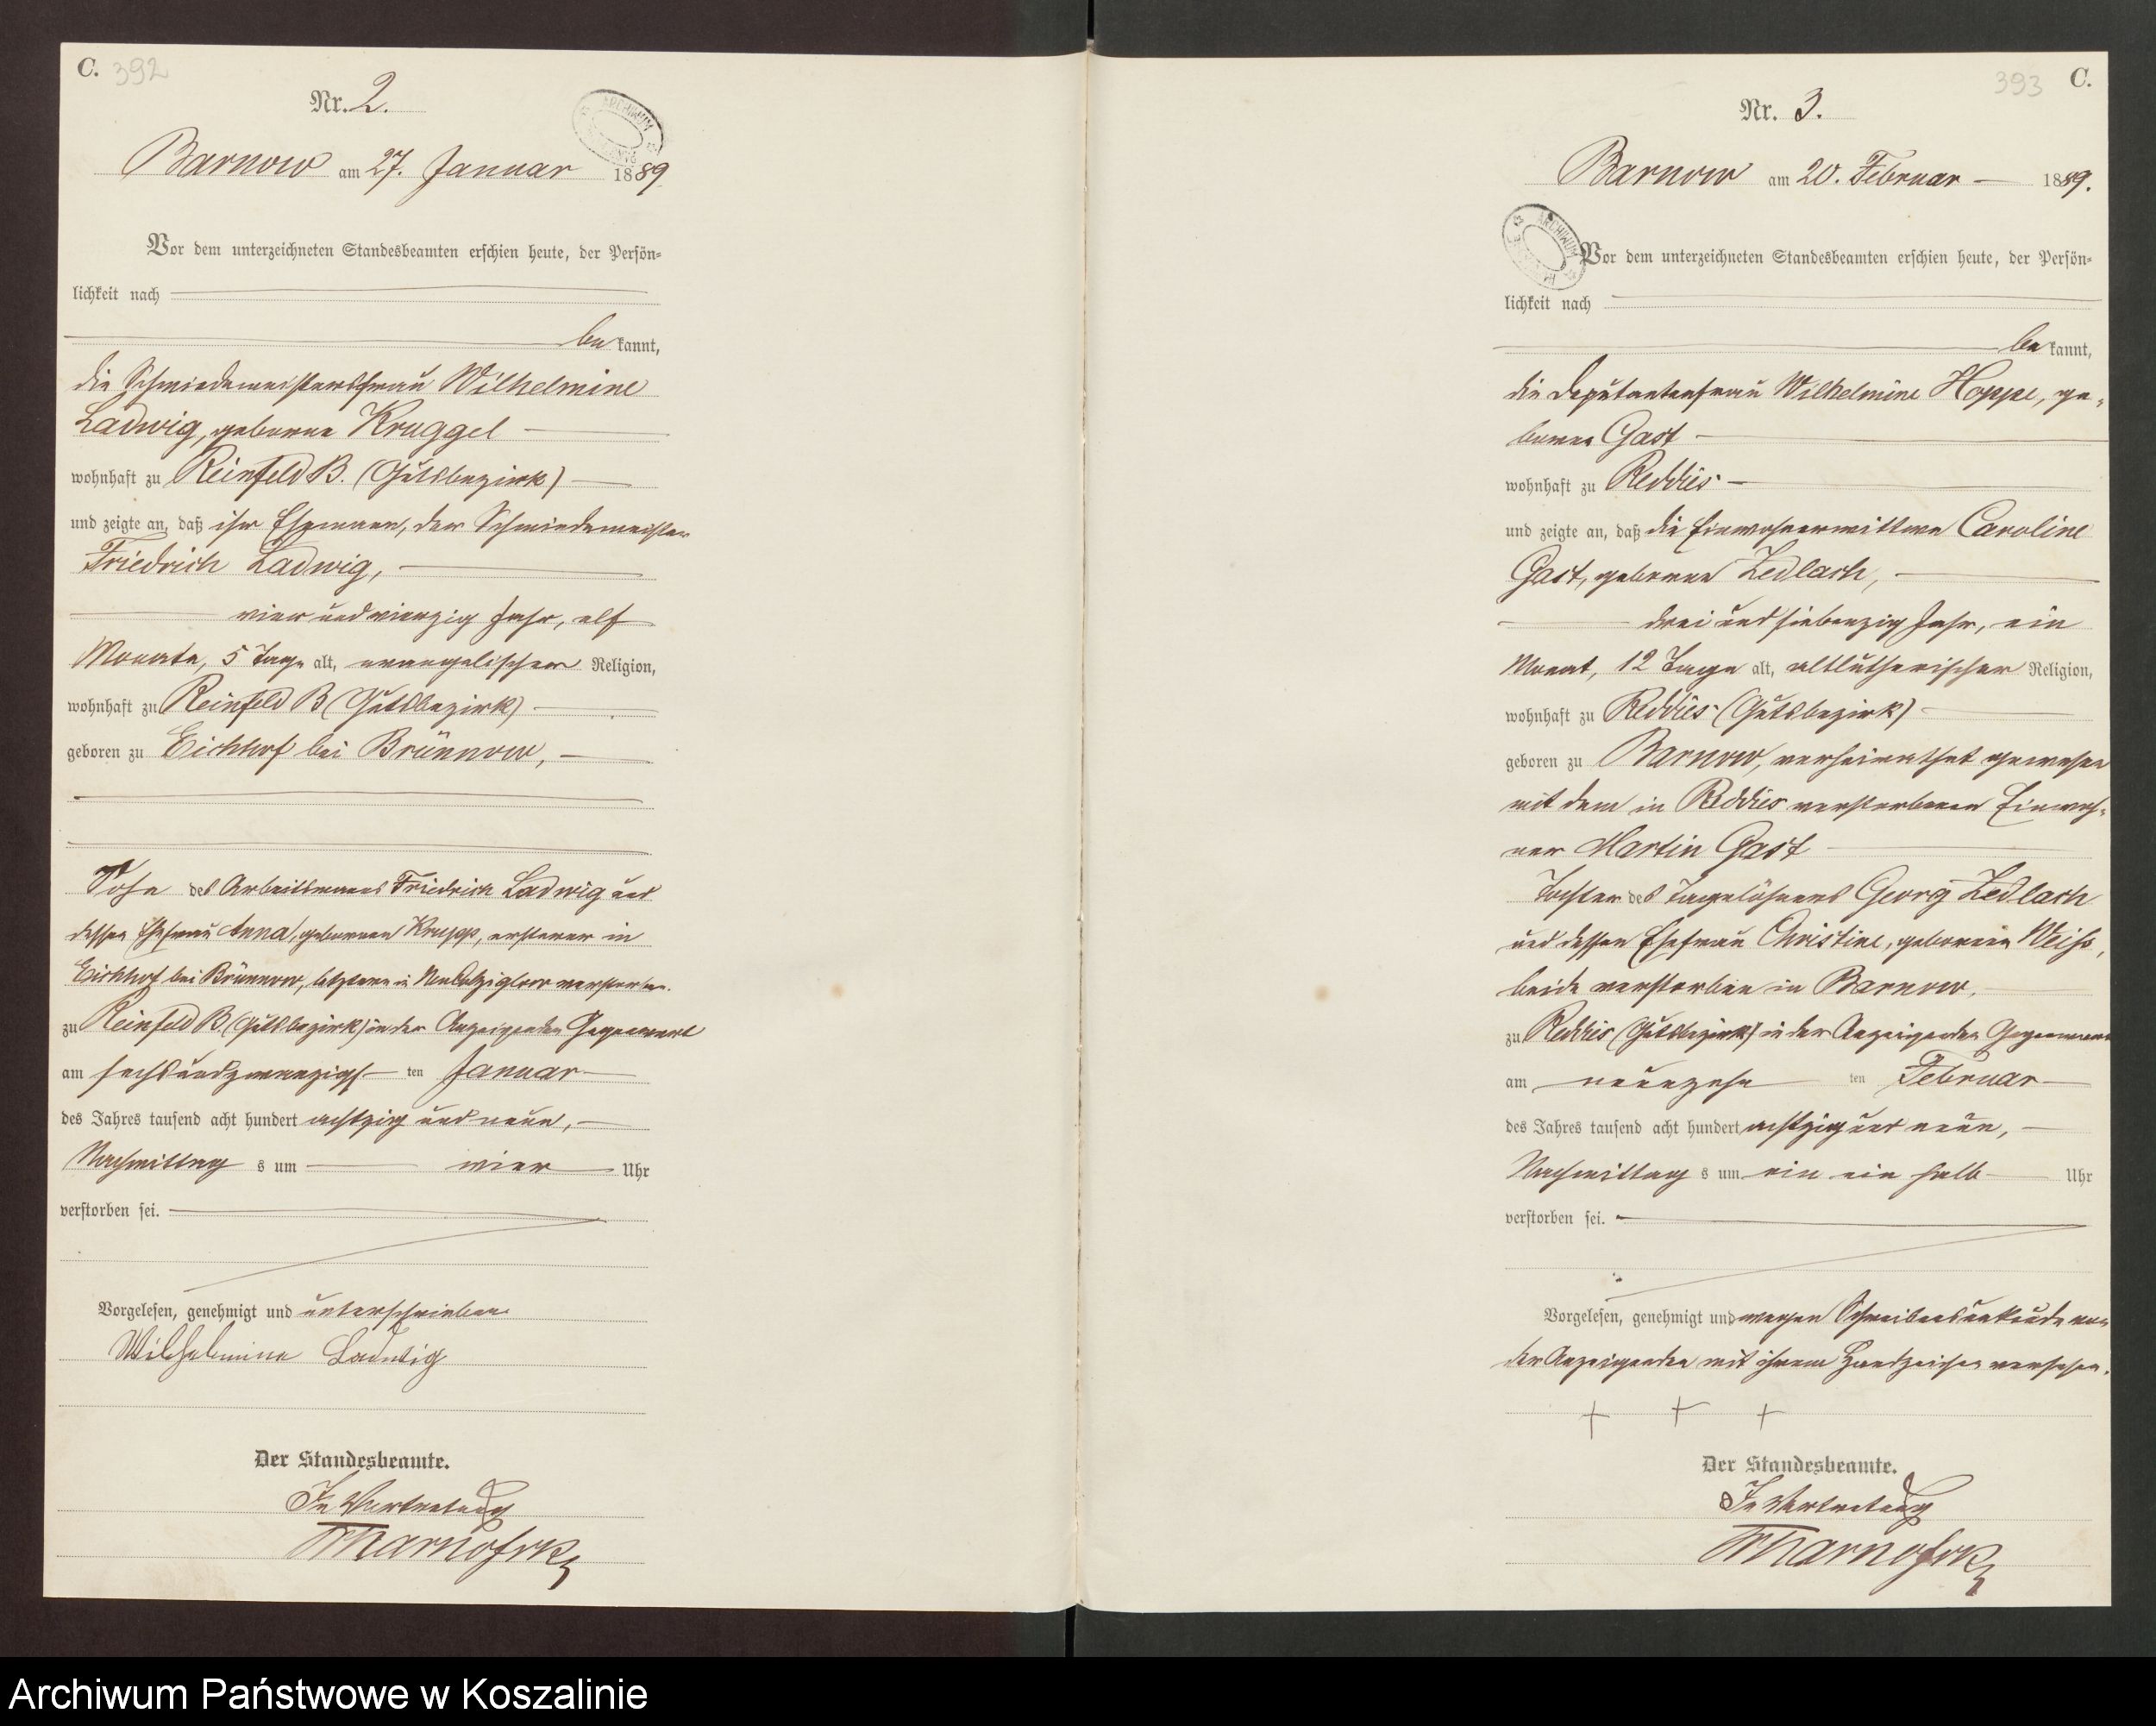 C. 392
Nr. 2.
ARCHIWUM
Barnow am 27. Januar 1889
Vor dem unterzeichneten Standesbeamten erschien heute, der Persön-
lichkeit nach
be kannt,
die Schmiedemeistersfrau Wilhelmine
Ladwig, geborene Kruggel
wohnhaft zu Reinfeld B. (Gutsbezirk)
und zeigte an, daß ihr Ehemann, der Schmiedemeister
Friedrich Ladwig,
vier und vierzig Jahr, elf
Monate, 5 Tage alt, evangelischer Religion,
wohnhaft zu Reinfeld B (Gutsbezirk)
geboren zu Eichhof bei Brünnow,
Sohn des Arbeitsmanns Friedrich Ladwig und
dessen Ehefrau Anna, geborenen Krupp, ersterer in
Eichhof bei Brünnow, letztere in verstorben.
zu Reinfeld B (Gutsbezirk) in der Anzeigenden Gegenwart
am sechsundzwanzigs ten Januar
des Jahres tausend acht hundert achtzig und neun,
Nachmittag s um vier Uhr
verstorben sei.
Vorgelesen, genehmigt und unterschrieben
Wilhelmine Ladwig
Der Standesbeamte.
In Vertretung
393 C.
Nr. 3.
Barnow am 20. Februar 1889.
ARCHIWUM
Vor dem unterzeichneten Standesbeamten erschien heute, der Persön-
lichkeit nach
be kannt,
die Deputantenfrau Wilhelmine Hoppe, ge-
borene Gast
wohnhaft zu Reddies
und zeigte an, daß die Einwohnerwittwe Caroline
Gast, geborene Zedlach,
drei und siebenzig Jahr, ein
Monat, 12 Tage alt, altlutherischer Religion,
wohnhaft zu Reddies (Gutsbezirk)
geboren zu Barnow, verheirathet gewesen
mit dem in Reddies verstorbenen Einwoh-
ner Martin Gast
Tochter des Tagelöhners Georg Zedlach
und dessen Ehefrau Christine, geborenen Weiss,
beide verstorben in Barnow,
zu Reddies (Gutsbezirk) in der Anzeigenden Gegenwart
am neunzehn ten Februar
des Jahres tausend acht hundert achtzig und neun,
Nachmittag s um ein ein halb Uhr
verstorben sei.
Vorgelesen, genehmigt und wegen Schreibensunkunde von
der Anzeigenden mit ihrem Handzeichen versehen.
+ + +
Der Standesbeamte.
In Vertretung
Archiwum Państwowe w Koszalinie